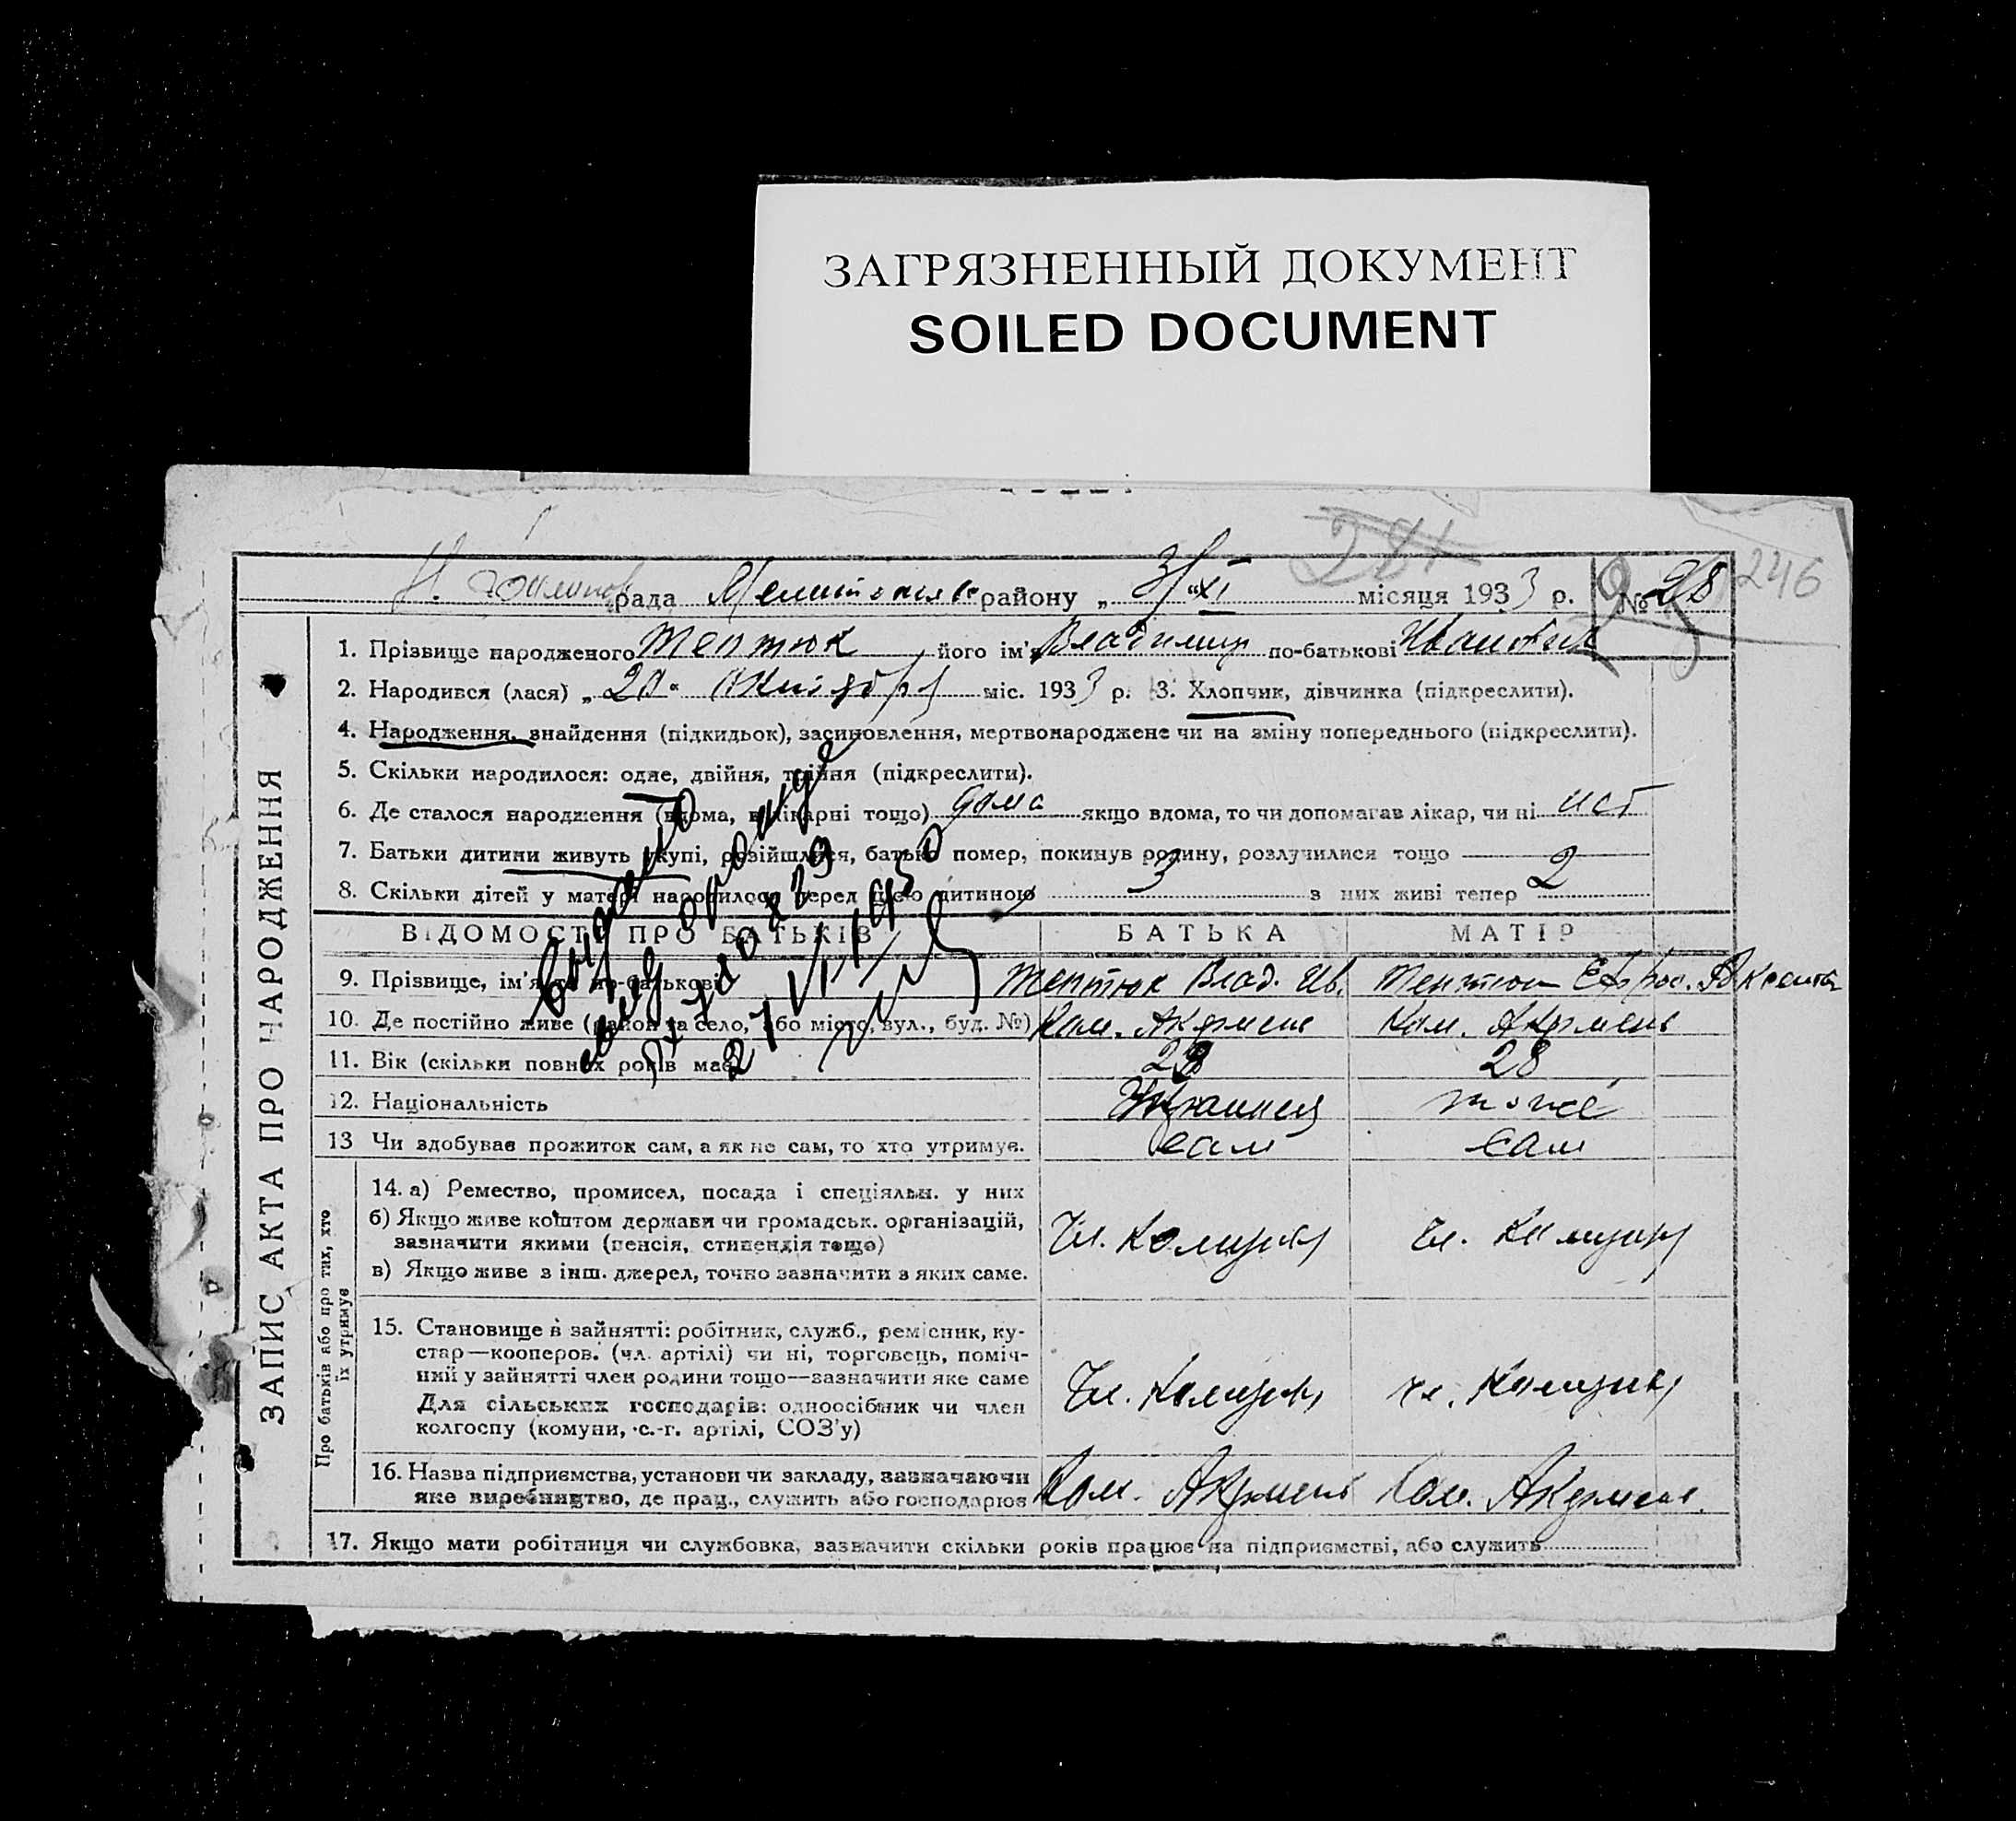 ЗАГРЯЗНЕННЫЙ ДОКУМЕНТ
SOILED DOCUMENT
246
рада району „ 3 “ XI місяця 1933 р. № 28
ЗАПИС АКТА ПРО НАРОДЖЕННЯ
1. Прізвище народженого Тептюк його ім'я Владимир по-батькові Иванович
2. Народився (лася) „ 20 “ Октября міс. 1933 р. 3. Хлопчик, дівчинка (підкреслити).
4. Народження, знайдення (підкидьок), засиновлення, мертвонароджене чи на зміну попереднього (підкреслити).
5. Скільки народилося: одне, двійня, трійня (підкреслити).
6. Де сталося народження (вдома, в лікарні тощо) дома якщо вдома, то чи допомагав лікар, чи ні нет
7. Батьки дитини живуть укупі, розійшлися, батько помер, покинув родину, розлучилися тощо
8. Скільки дітей у матері народилося перед цією дитиною 3 з них живі тепер 2
ВІДОМОСТІ ПРО БАТЬКІВ БАТЬКА МАТІР
9. Прізвище, ім'я та по-батькові Тептюк Влад. Ив. Тептюк
10. Де постійно живе (район та село, або місто, вул., буд. №) Ком. Акрмень Ком. Акрмень
11. Вік (скільки повних років має) 28 28
12. Національність Украинец тоже
13 Чи здобуває прожиток сам, а як не сам, то хто утримує. сам сам
Про батьків або про тих, хто їх утримує
14. а) Ремество, промисел, посада і спеціяльн. у них
б) Якщо живе коштом держави чи громадськ. організацій,
зазначити якими (пенсія, стипендія тощо)
в) Якщо живе з інш. джерел, точно зазначити з яких саме.
Чл. Комуны Чл. Комуны
15. Становище в зайнятті: робітник, служб., ремісник, ку-
стар—кооперов. (чл. артілі) чи ні, торговець, поміч-
ний у зайнятті член родини тощо—зазначити яке саме
Для сільських господарів: одноосібник чи член
колгоспу (комуни, с.-г. артілі, СОЗ'у)
Чл. Комуны чл. Комуны
16. Назва підприємства, установи чи закладу, зазначаючи
яке виробництво, де прац., служить або господарює Ком. Акрмень Ком. Акрмень
17. Якщо мати робітниця чи службовка, зазначити скільки років працює на підприємстві, або служить